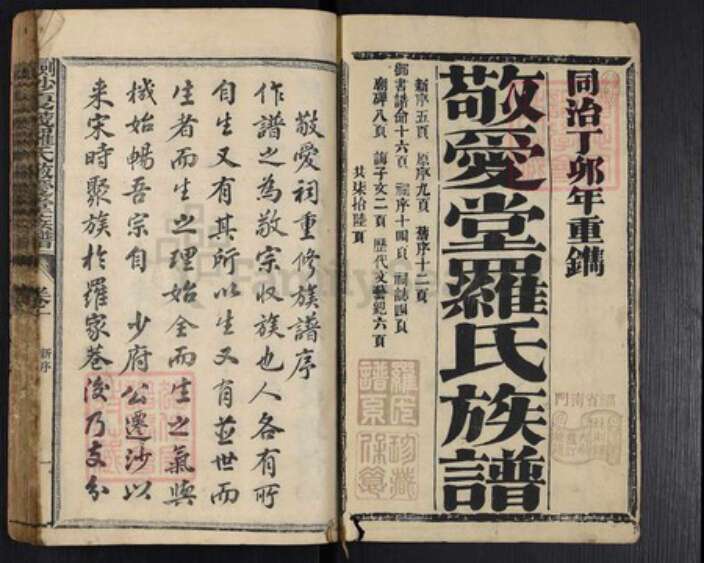 同治丁卯年重鐫
敬愛堂羅氏族譜
新序五頁 原序九頁 舊序十二頁
御書譜命十六頁 祠序十四頁 祠誌四頁
廟碑八頁 誨子文二頁 歷代文藝紀六頁
共柒拾陸頁
羅氏珍藏
敬愛祠重修族譜序
作譜之為敬宗收族也人各有所
自生又有其所以生又有並世而
生者而生之理始全而生之氣與
域始暢吾宗自 少府公遷沙以
来宋時聚族於羅家巷後乃支分
羅氏敬愛堂族譜
卷一
新序
一